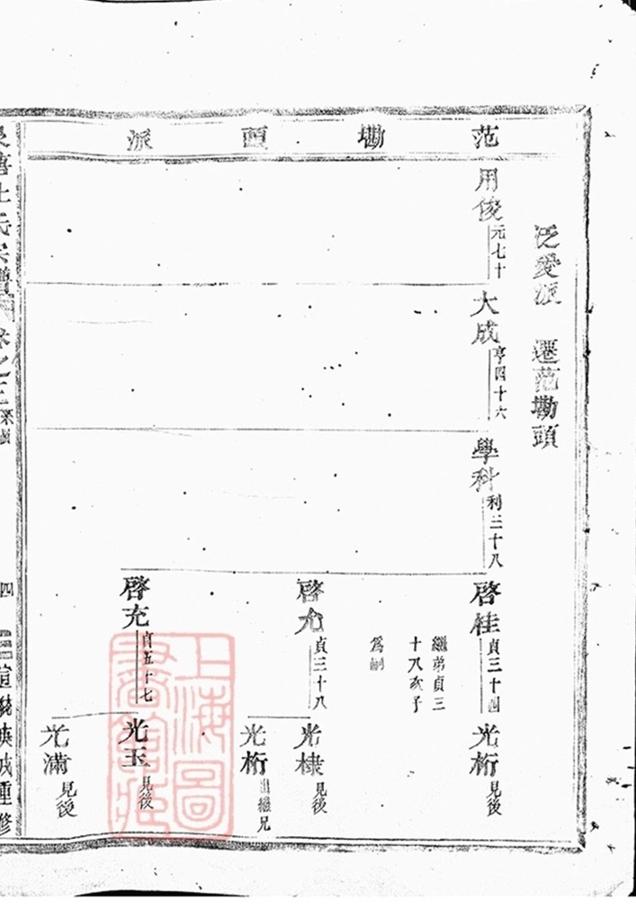 范墈頭派
泛愛派 遷范墈頭
用俊 元七十
大成 亨四十六
學科 利三十八
啓桂 貞三十四
繼弟貞三
十八次子
為嗣
光桁 見後
啓允 貞三十八
光棣 見後
光桁 出繼兄
啓充 貞五十七
光玉 見後
光滿 見後
氏宗譜 卷之三
四
重修
上海圖書館藏